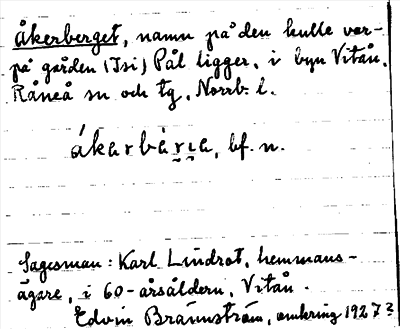 Åkerberget, namn på den kulle var-
på gården (Isi) Pål ligger, i byn Vitån.
Råneå sn och tg, Norrb. l.
ákarbàrıa, bf. n.
Sagesman: Karl Lindrot, hemmans-
ägare, i 60-årsåldern, Vitån.
Edvin Brännström, omkring 1927?